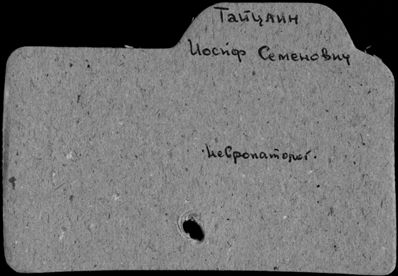 Тайцлин
Иосиф Семенович
невропатолог.